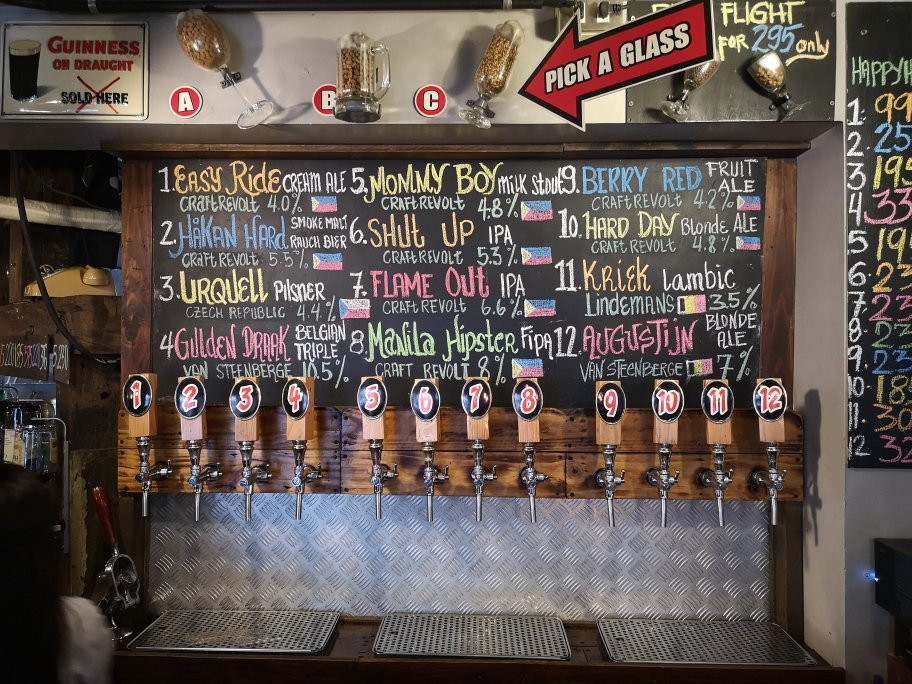 GUINNESS
ON DRAUGHT
SOLD HERE
A
B
C
PICK A GLASS
FLIGHT
FOR 295 only
1. EASY RiDE CREAM ALE
CRAFT REVOLT 4.0%
2. HAKAN HARD SMOKE MALT
RAUCH BIER
CRAFT REVOLT 5.5%
3. URQUELL PILSNER
CZECH REPUBLIC 4.4%
4 GULDEN DRAAK BELGIAN
TRIPLE
VAN STEENBERGE 10.5%
5. MOMMY BOY MILK STOUT
CRAFT REVOLT 4.8%
6. SHUT UP IPA
CRAFT REVOLT 5.3%
7. FLAME OUT IPA
CRAFT REVOLT 6.6%
8. Manila Hipster FIPA
CRAFT REVOLT 8%
9. BERRY RED FRUIT
ALE
CRAFT REVOLT 4.2%
10. HARD DAY Blonde ALE
CRAFT REVOLT 4.8%
11. KRiEK Lambic
LINDEMANS 3.5%
12. AUGUSTiJN BLONDE
ALE
VAN STEENBERGE 7%
1 2 3 4 5 6 7 8 9 10 11 12
HAPPYH
1.
2.
3.
4.
5.
6.
7.
8.
9.
10.
11.
12